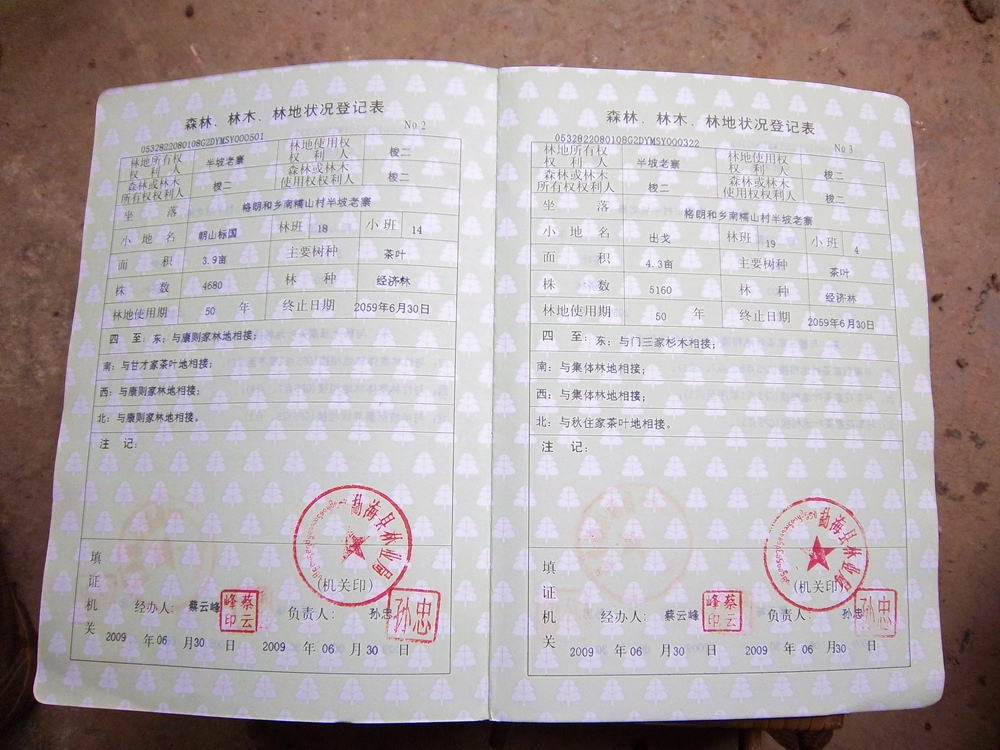 森林、林木、林地状况登记表
No 2
0532822080108G2DYMSY000501
林地所有权权利人 半坡老寨 林地使用权权利人 梭二
森林或林木所有权权利人 梭二 森林或林木使用权权利人 梭二
坐落 格朗和乡南糯山村半坡老寨
小地名 朝山标国 林班 18 小班 14
面积 3.9亩 主要树种 茶叶
株数 4680 林种 经济林
林地使用期 50 年 终止日期 2059年6月30日
四至:东:与康则家林地相接;
南:与甘才家茶叶地相接;
西:与康则家林地相接;
北:与康则家林地相接。
注记:
勐海县林业局
填证机关
(机关印)
经办人: 蔡云峰 蔡云峰印 负责人: 孙忠 孙忠
2009 年 06 月 30 日 2009 年 06 月 30 日
森林、林木、林地状况登记表
No 3
0532822080108G2DYMSY000322
林地所有权权利人 半坡老寨 林地使用权权利人 梭二
森林或林木所有权权利人 梭二 森林或林木使用权权利人 梭二
坐落 格朗和乡南糯山村半坡老寨
小地名 出戈 林班 19 小班 4
面积 4.3亩 主要树种 茶叶
株数 5160 林种 经济林
林地使用期 50 年 终止日期 2059年6月30日
四至:东:与门三家杉木相接;
南:与集体林地相接;
西:与集体林地相接;
北:与秋住家茶叶地相接。
注记:
勐海县林业局
填证机关
(机关印)
经办人: 蔡云峰 蔡云峰印 负责人: 孙忠 孙忠
2009 年 06 月 30 日 2009 年 06 月 30 日